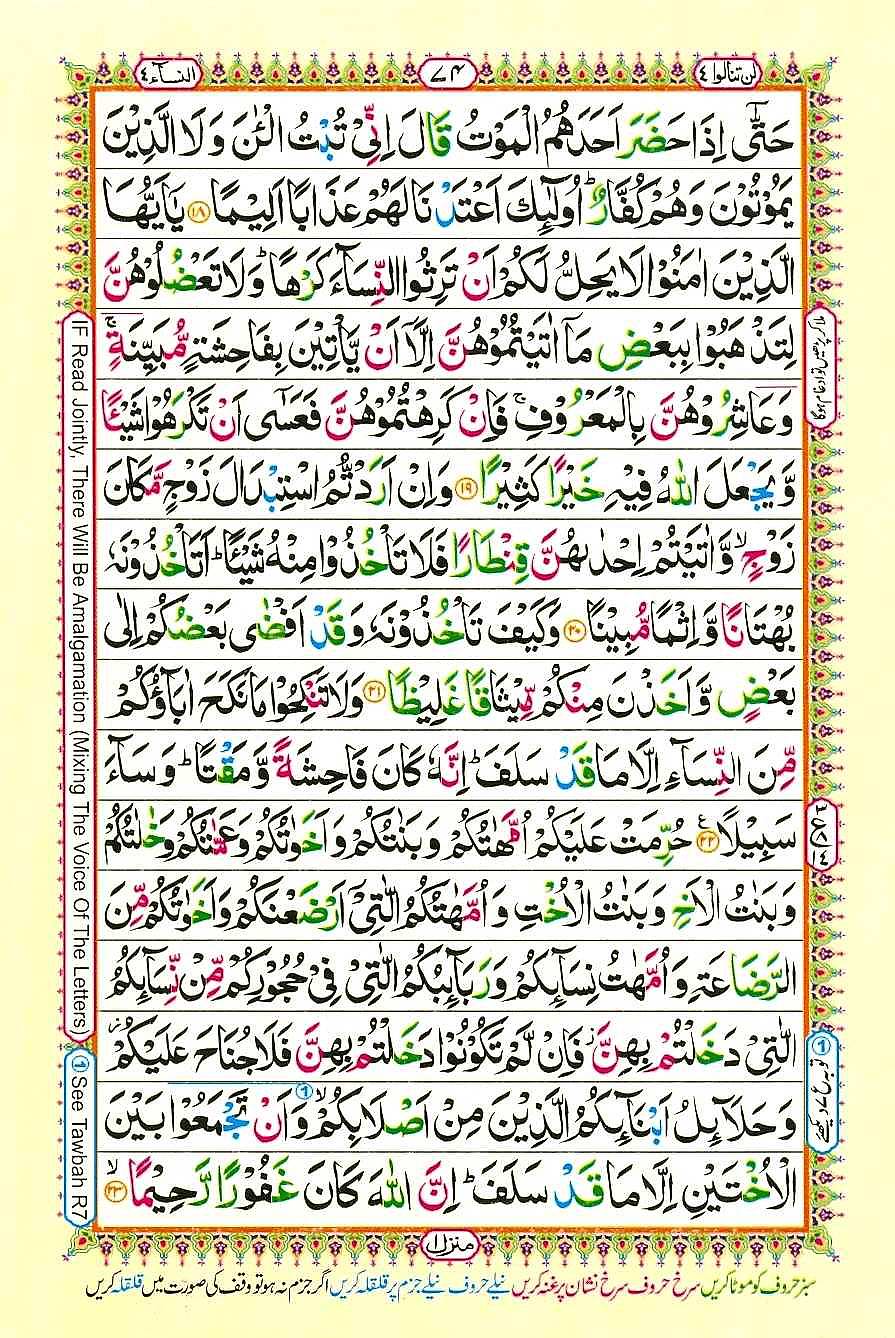 لن تنالوا ٤
٧٤
النسآء ٤
حَتّٰۤى اِذَا حَضَرَ اَحَدَهُمُ الْمَوْتُ قَالَ اِنِّىْ تُبْتُ الْـٰٔنَ وَلَا الَّذِيْنَ
يَمُوْتُوْنَ وَهُمْ كُفَّارٌ ؕ اُولٰٓئِكَ اَعْتَدْنَا لَهُمْ عَذَابًا اَلِيْمًا ۝١٨ يٰۤاَيُّهَا
الَّذِيْنَ اٰمَنُوْا لَا يَحِلُّ لَكُمْ اَنْ تَرِثُوا النِّسَآءَ كَرْهًا ؕ وَلَا تَعْضُلُوْهُنَّ
لِتَذْهَبُوْا بِبَعْضِ مَاۤ اٰتَيْتُمُوْهُنَّ اِلَّاۤ اَنْ يَّاْتِيْنَ بِفَاحِشَةٍ مُّبَيِّنَةٍ ۚ
وَعَاشِرُوْهُنَّ بِالْمَعْرُوْفِ ۚ فَاِنْ كَرِهْتُمُوْهُنَّ فَعَسٰۤى اَنْ تَكْرَهُوْا شَيْـًٔا
وَّيَجْعَلَ اللّٰهُ فِيْهِ خَيْرًا كَثِيْرًا ۝١٩ وَاِنْ اَرَدْتُّمُ اسْتِبْدَالَ زَوْجٍ مَّكَانَ
زَوْجٍ ۙ وَّاٰتَيْتُمْ اِحْدٰىهُنَّ قِنْطَارًا فَلَا تَاْخُذُوْا مِنْهُ شَيْـًٔا ؕ اَتَاْخُذُوْنَهٗ
بُهْتَانًا وَّاِثْمًا مُّبِيْنًا ۝٢٠ وَكَيْفَ تَاْخُذُوْنَهٗ وَقَدْ اَفْضٰى بَعْضُكُمْ اِلٰى
بَعْضٍ وَّاَخَذْنَ مِنْكُمْ مِّيْثَاقًا غَلِيْظًا ۝٢١ وَلَا تَنْكِحُوْا مَا نَكَحَ اٰبَآؤُكُمْ
مِّنَ النِّسَآءِ اِلَّا مَا قَدْ سَلَفَ ؕ اِنَّهٗ كَانَ فَاحِشَةً وَّمَقْتًا ؕ وَسَآءَ
سَبِيْلًا ۝٢٢ حُرِّمَتْ عَلَيْكُمْ اُمَّهٰتُكُمْ وَبَنٰتُكُمْ وَاَخَوٰتُكُمْ وَعَمّٰتُكُمْ وَخٰلٰتُكُمْ
وَبَنٰتُ الْاَخِ وَبَنٰتُ الْاُخْتِ وَاُمَّهٰتُكُمُ الّٰتِىْۤ اَرْضَعْنَكُمْ وَاَخَوٰتُكُمْ مِّنَ
الرَّضَاعَةِ وَاُمَّهٰتُ نِسَآئِكُمْ وَرَبَآئِبُكُمُ الّٰتِىْ فِىْ حُجُوْرِكُمْ مِّنْ نِّسَآئِكُمُ
الّٰتِىْ دَخَلْتُمْ بِهِنَّ ؗ فَاِنْ لَّمْ تَكُوْنُوْا دَخَلْتُمْ بِهِنَّ فَلَا جُنَاحَ عَلَيْكُمْ ؗ
وَحَلَآئِلُ اَبْنَآئِكُمُ الَّذِيْنَ مِنْ اَصْلَابِكُمْ ۙ وَاَنْ تَجْمَعُوْا بَيْنَ
الْاُخْتَيْنِ اِلَّا مَا قَدْ سَلَفَ ؕ اِنَّ اللّٰهَ كَانَ غَفُوْرًا رَّحِيْمًا ۙ ۝٢٣
منزل ١
سبز حروف کو موٹا کریں سرخ حروف سرخ نشان پر غنہ کریں نیلے حروف نیلے جزم پر قلقلہ کریں اگر جزم نہ ہو تو وقف کی صورت میں قلقلہ کریں
IF Read Jointly, There Will Be Amalgamation (Mixing The Voice Of The Letters)
① See Tawbah R7
ملا کر پڑھیں تو ادغام ہوگا